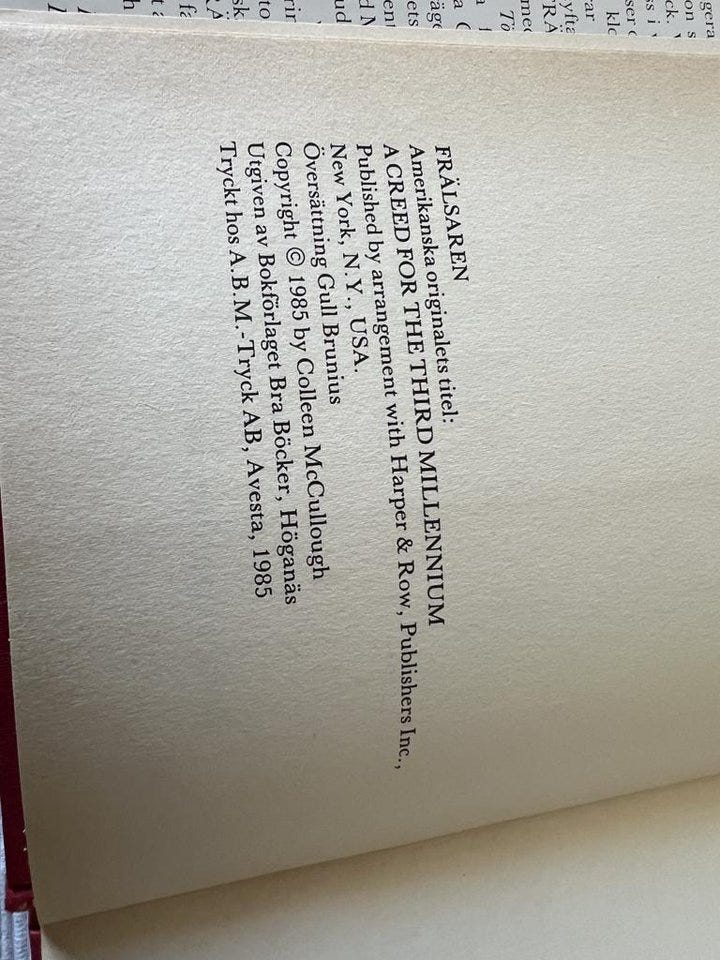 FRÄLSAREN
Amerikanska originalets titel:
A CREED FOR THE THIRD MILLENNIUM
Published by arrangement with Harper & Row, Publishers Inc.,
New York, N.Y., USA.
Översättning Gull Brunius
Copyright © 1985 by Colleen McCullough
Utgiven av Bokförlaget Bra Böcker, Höganäs
Tryckt hos A.B.M.-Tryck AB, Avesta, 1985